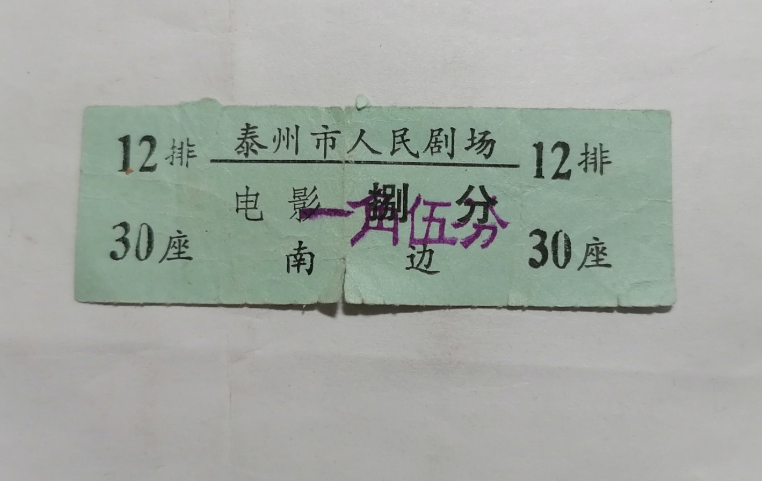 泰州市人民剧场
12排 12排
电影 捌分
一角伍分
30座 30座
南边